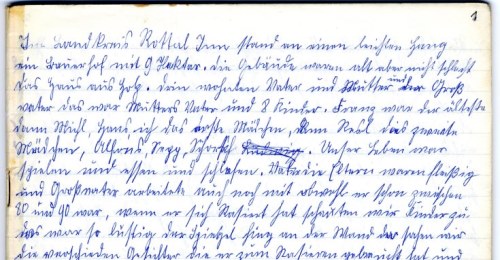 1
Im Landkreis Rottal Inn stand an einen leichten Hang
ein Bauerhof mit 9 Hektar. die Gebäude waren alt aber nicht schlecht
das Haus aus Holz. drin wohnten Vater und Mutter und der Groß
vater das war Mutters Vater und 8 Kinder. Franz war der älteste
dann Michl, Hans, ich das erste Mädchen, dann Resl das zweite
Mädchen, Alfons, Sepp, Schorsch Ludwig. Unser Leben war
spielen und essen und schlafen. die Eltern waren fleißig
und Großvater arbeitete auch noch mit obwohl er schon zwischen
80 und 90 war, wenn er sich Rasiert hat schauten wir Kinder zu.
das war so lustig der Spiegel hing an der Wand da sahen wir
die verschieden Gesichter die er zum Rasieren gebraucht hat und